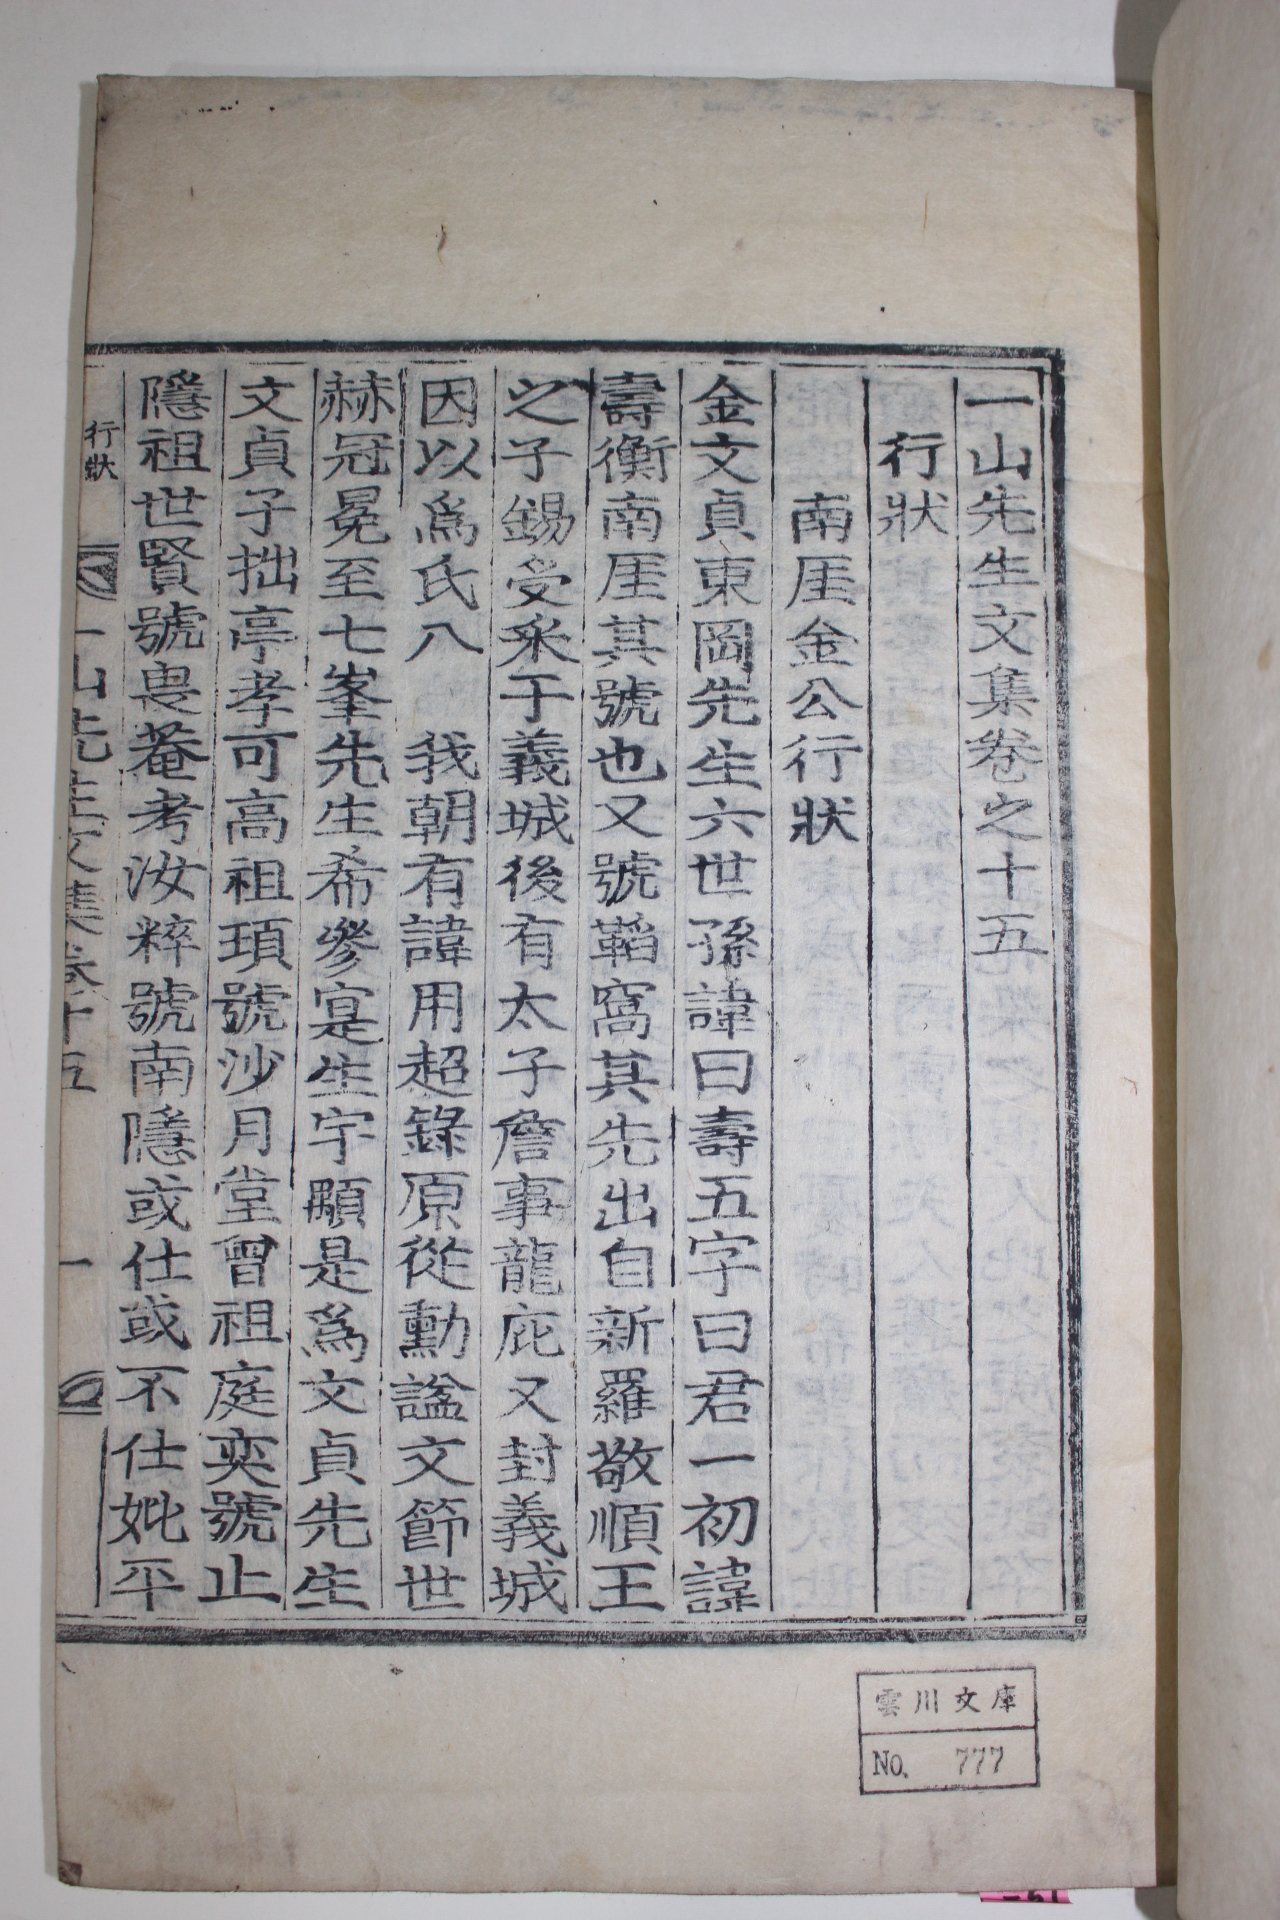 一山先生文集卷之十五
行狀
南厓金公行狀
金文貞東岡先生六世孫諱曰壽五字曰君一初諱
壽衡南厓其號也又號韜窩其先出自新羅敬順王
之子錫受采于義城後有太子詹事龍庇又封義城
因以爲氏入　我朝有諱用超錄原從勳諡文節世
赫冠冕至七峯先生希參寔生宇顒是爲文貞先生
文貞子拙亭孝可高祖頊號沙月堂曾祖庭奕號止
隱祖世賢號畏菴考汝粹號南隱或仕或不仕妣平
行狀
一山先生文集卷十五
一
雲川文庫
No. 777